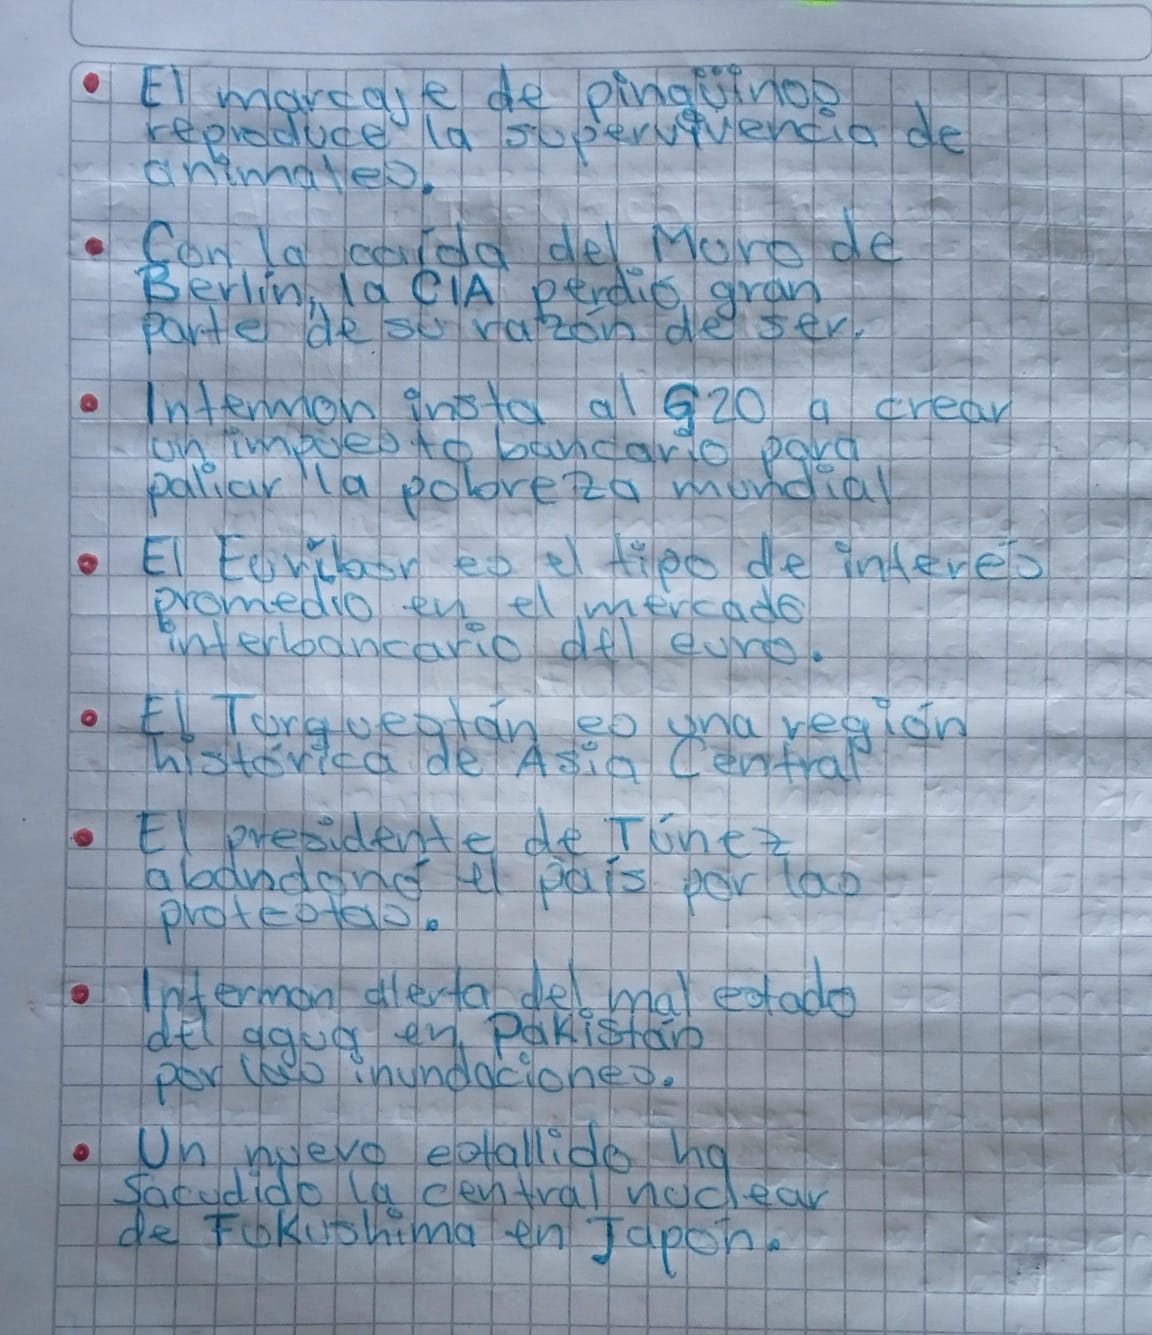 • El marcaje de pingüinos
reproduce la supervivencia de
animales.
• Con la caída del Muro de
Berlín, la CIA perdió gran
parte de su razón de ser.
• Intermon insta al G20 a crear
un impuesto bancario para
paliar la pobreza mundial
• El Euribor es el tipo de interés
promedio en el mercado
interbancario del euro.
• El Turquestán es una región
histórica de Asia Central
• El presidente de Túnez
abandonó el país por las
protestas.
• Intermon alerta del mal estado
del agua en Pakistán
por las inundaciones.
• Un nuevo estallido ha
Sacudido la central nuclear
de Fukushima en Japón.